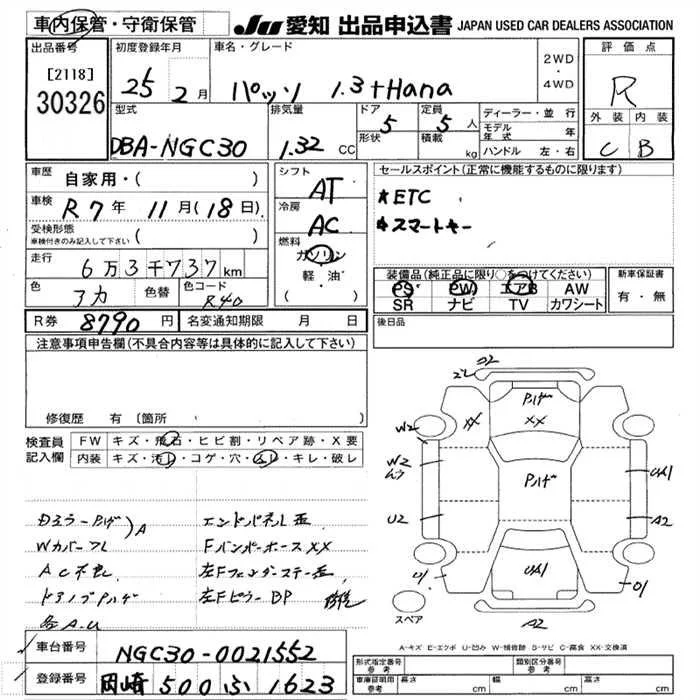 車内保管・守衛保管
JU 愛知 出品申込書 JAPAN USED CAR DEALERS ASSOCIATION
出品番号
[2118]
30326
初度登録年月
25 年 2 月
車名・グレード
パッソ 1.3 +Hana
2WD
・
4WD
評価点
R
外装 内装
C B
型式
DBA-NGC30
排気量
1.32 CC
ドア
5
形状
定員
5 人
積載
kg
ディーラー・並行
モデル年式 年
ハンドル 左・右
車歴
自家用・( )
車検
R7 年 11 月 (18 日)
受検形態
車検付きのみ記入して下さい ( )
走行
6 万 3 千 737 km
色
アカ
色替
色コード
R40
シフト
AT
冷房
AC
燃料
ガソリン
軽・油
( )
セールスポイント(正常に機能するものに限ります)
*ETC
*スマートキー
装備品(純正品に限り○をつけてください)
PS PW エアB AW
SR ナビ TV カワシート
新車保証書
有・無
R券 8790 円
名変通知期限 月 日
後日品
注意事項申告欄(不具合内容等は具体的に記入して下さい)
修復歴 有 〔箇所
検査員
記入欄
FW キズ・飛石・ヒビ割・リペア跡・X要
内装 キズ・汚レ・コゲ・穴・ムレ・キレ・破レ
Wカバーフレ
AC不良
ドアノブPハゲ
各A.U
)A
エンドパネル歪
Fバンパーホース XX
左Fフェンダーステー歪
左Fピラー BP 修復
A2
Pハゲ
XX
XX
W2
W2
U2
Pハゲ
UA1
A2
UA1
U1
A2
スペア
A-キズ E-エクボ U-凹み W-補修跡 S-サビ C-腐食 XX-交換済
車台番号
NGC30-0021552
登録番号
岡崎 500 ふ 1623
形式指定番号
参考
類別区分番号
参考
車庫証明用
参考
長さ cm
幅 cm
高さ cm